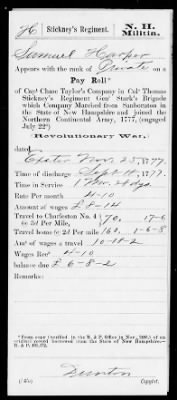 H Stickney's Regiment. N. H. Militia.
Samuel Harper
Appears with the rank of Private on a
Pay Roll*
Of Capt Chase Taylor's Company in Colo Thomas
Stickney's Regiment Genl Stark's Brigade
which Company Marched from Sanbornton in
the State of New Hampshire and joined the
Northern Continental Army, 1777, (engaged
July 22d)
Revolutionary War,
dated
Exeter Nov. 25, 1777.
Time of discharge Sept 18, 1777.
Time in Service 1 Mo. 29 dys.
Rate Per month 4-10
Amount of wages £ 8-14
Travel to Charleston No. 4 70, 17-6
@ 3d Per Mile,
Travel home @ 2d per mile 160, 1-6-8
Amt of wages & travel 10-18-2
Wages Recd 4-10
balance due £ 6-8-2
Remarks:
*From copy (verified in the R. & P. Office in Nov., 1898,) of an
original record borrowed from the State of New Hampshire—
R. & P.
Copyist.